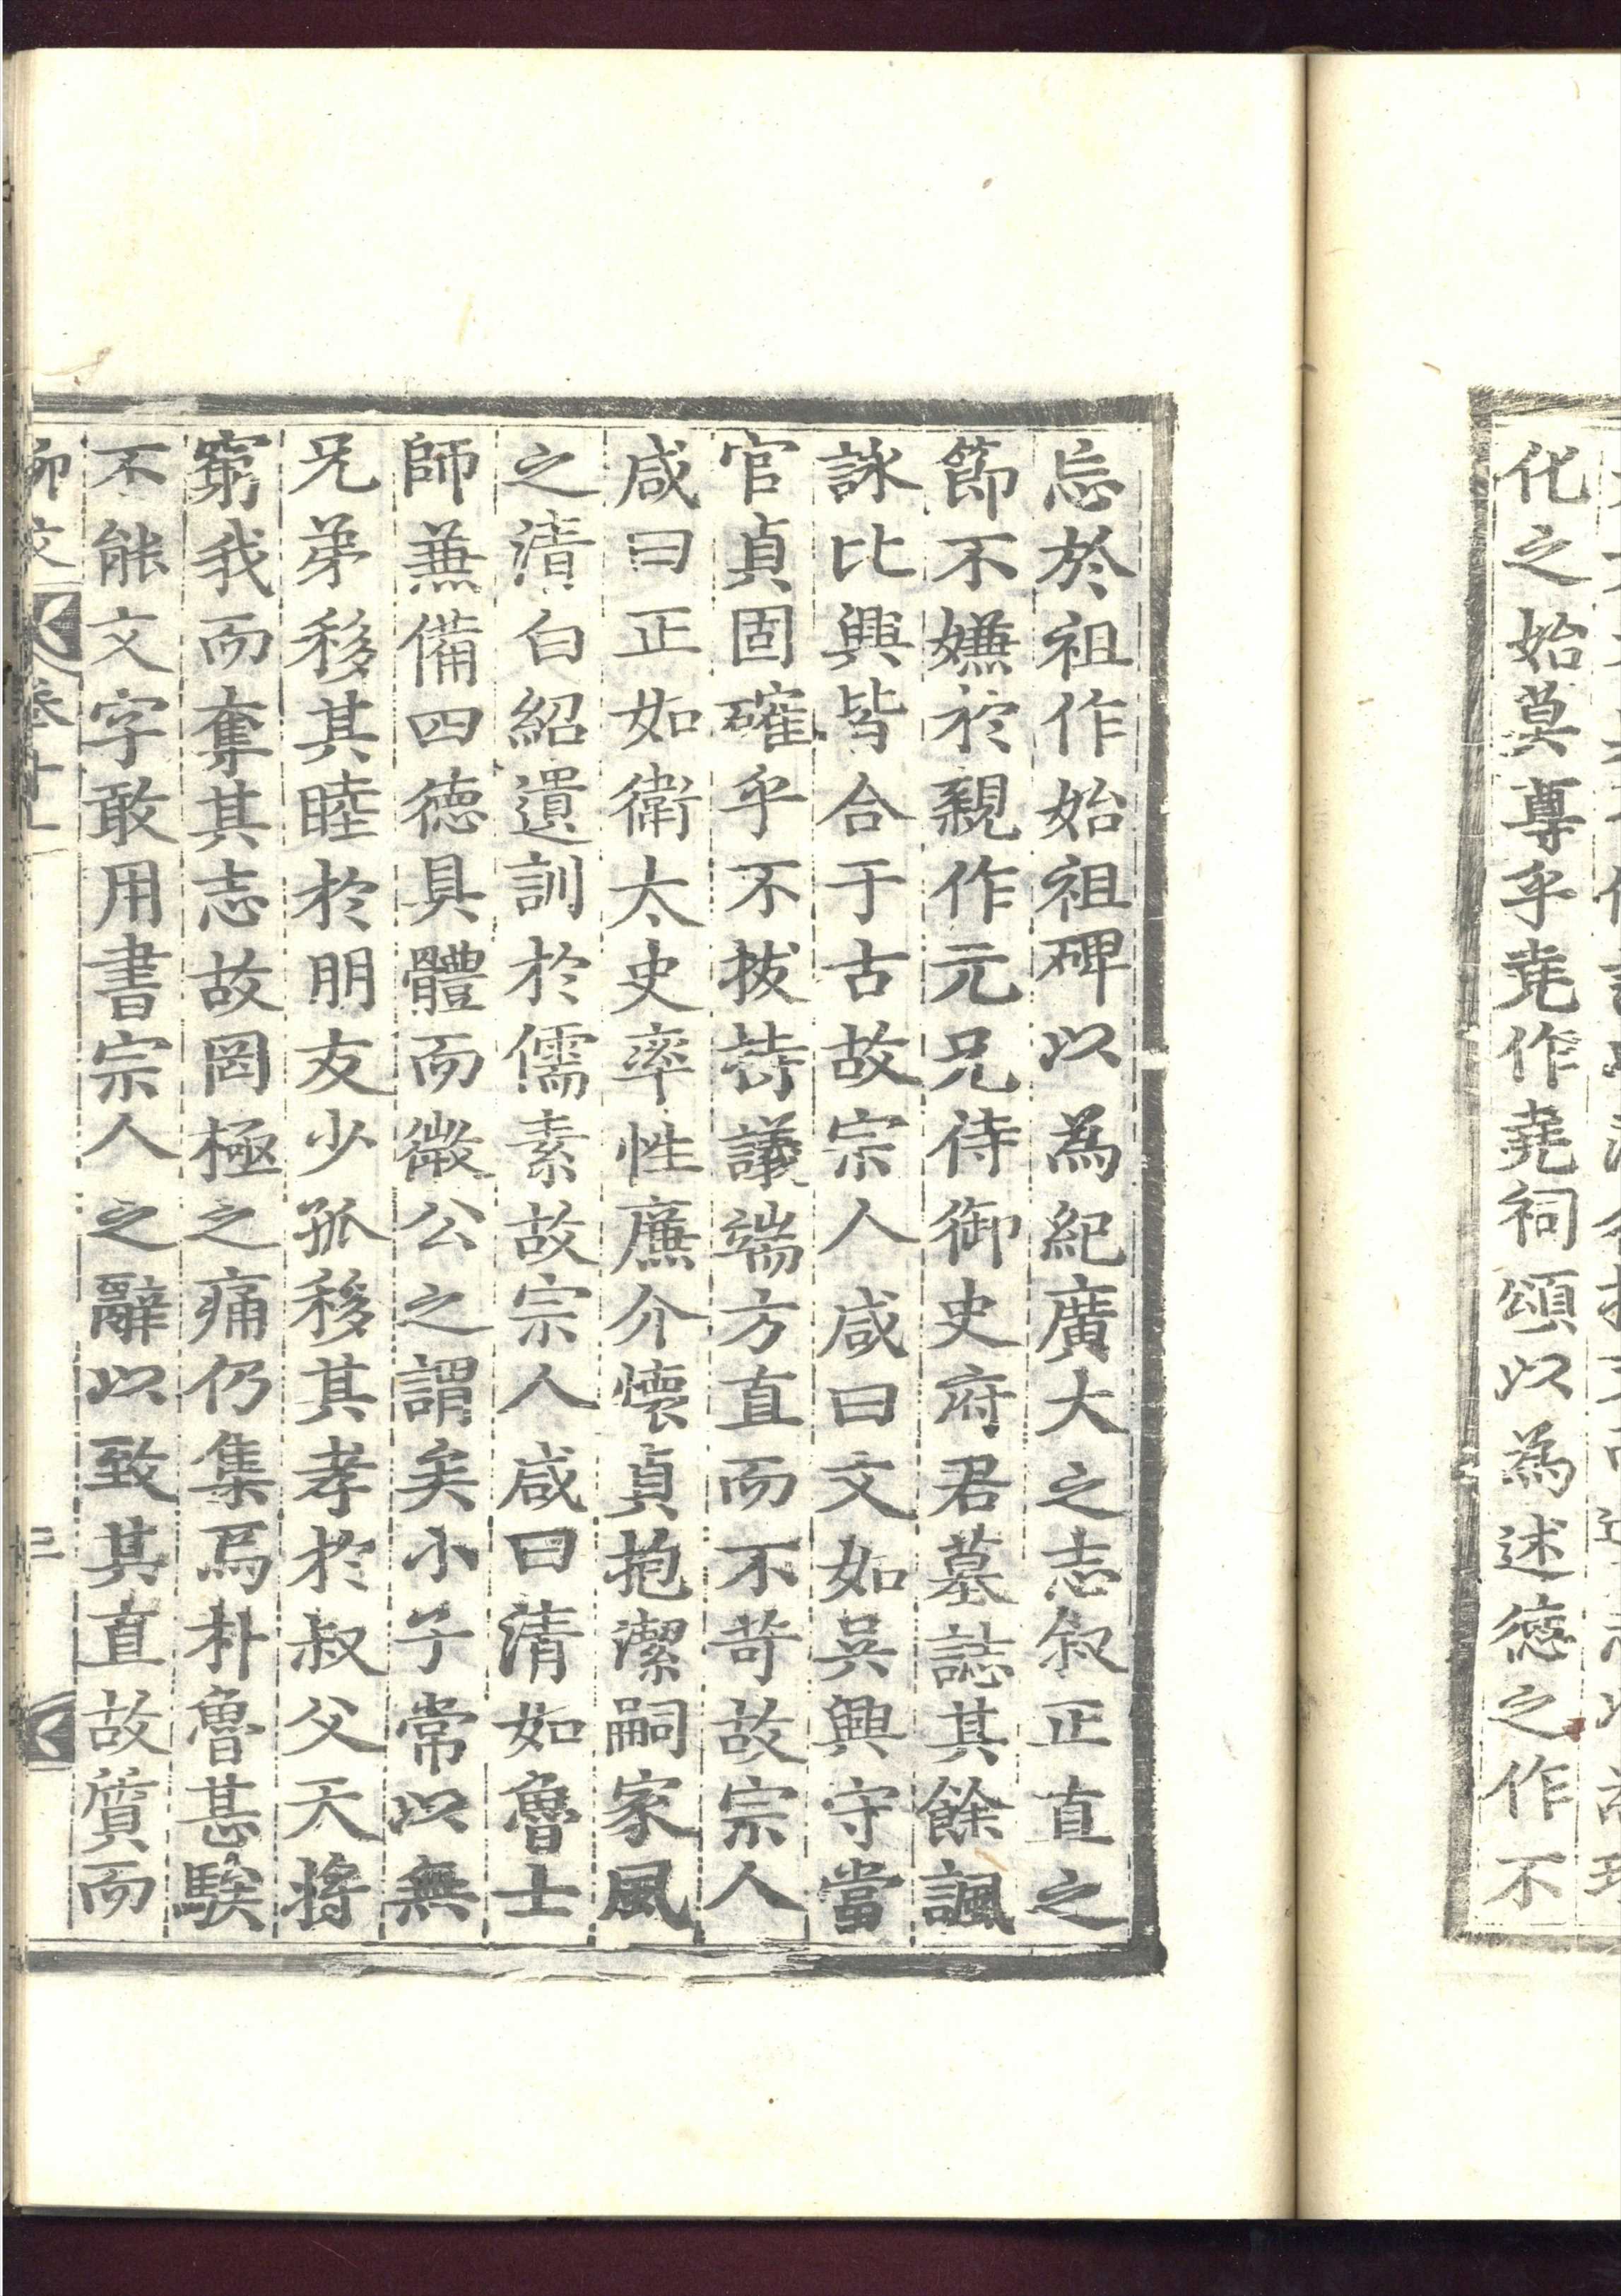 化之始莫尊乎堯作堯祠頌以為述德之作不
忘於祖作始祖碑以為紀廣大之志叙正直之
節不嫌於親作元兄待御史府君墓誌其餘諷
詠比興皆合于古故宗人咸曰文如吳興守當
官貞固確乎不拔持議端方直而不苛故宗人
咸曰正如衛太史率性廉介懷貞抱潔嗣家風
之清白紹遺訓於儒素故宗人咸曰清如魯士
師兼備四德具體而微公之謂矣小子常以無
兄弟移其睦於朋友少孤移其孝於叔父天將
窮我而奪其志故罔極之痛仍集焉朴魯甚騃
不能文字敢用書宗人之辭以致其直故質而
三